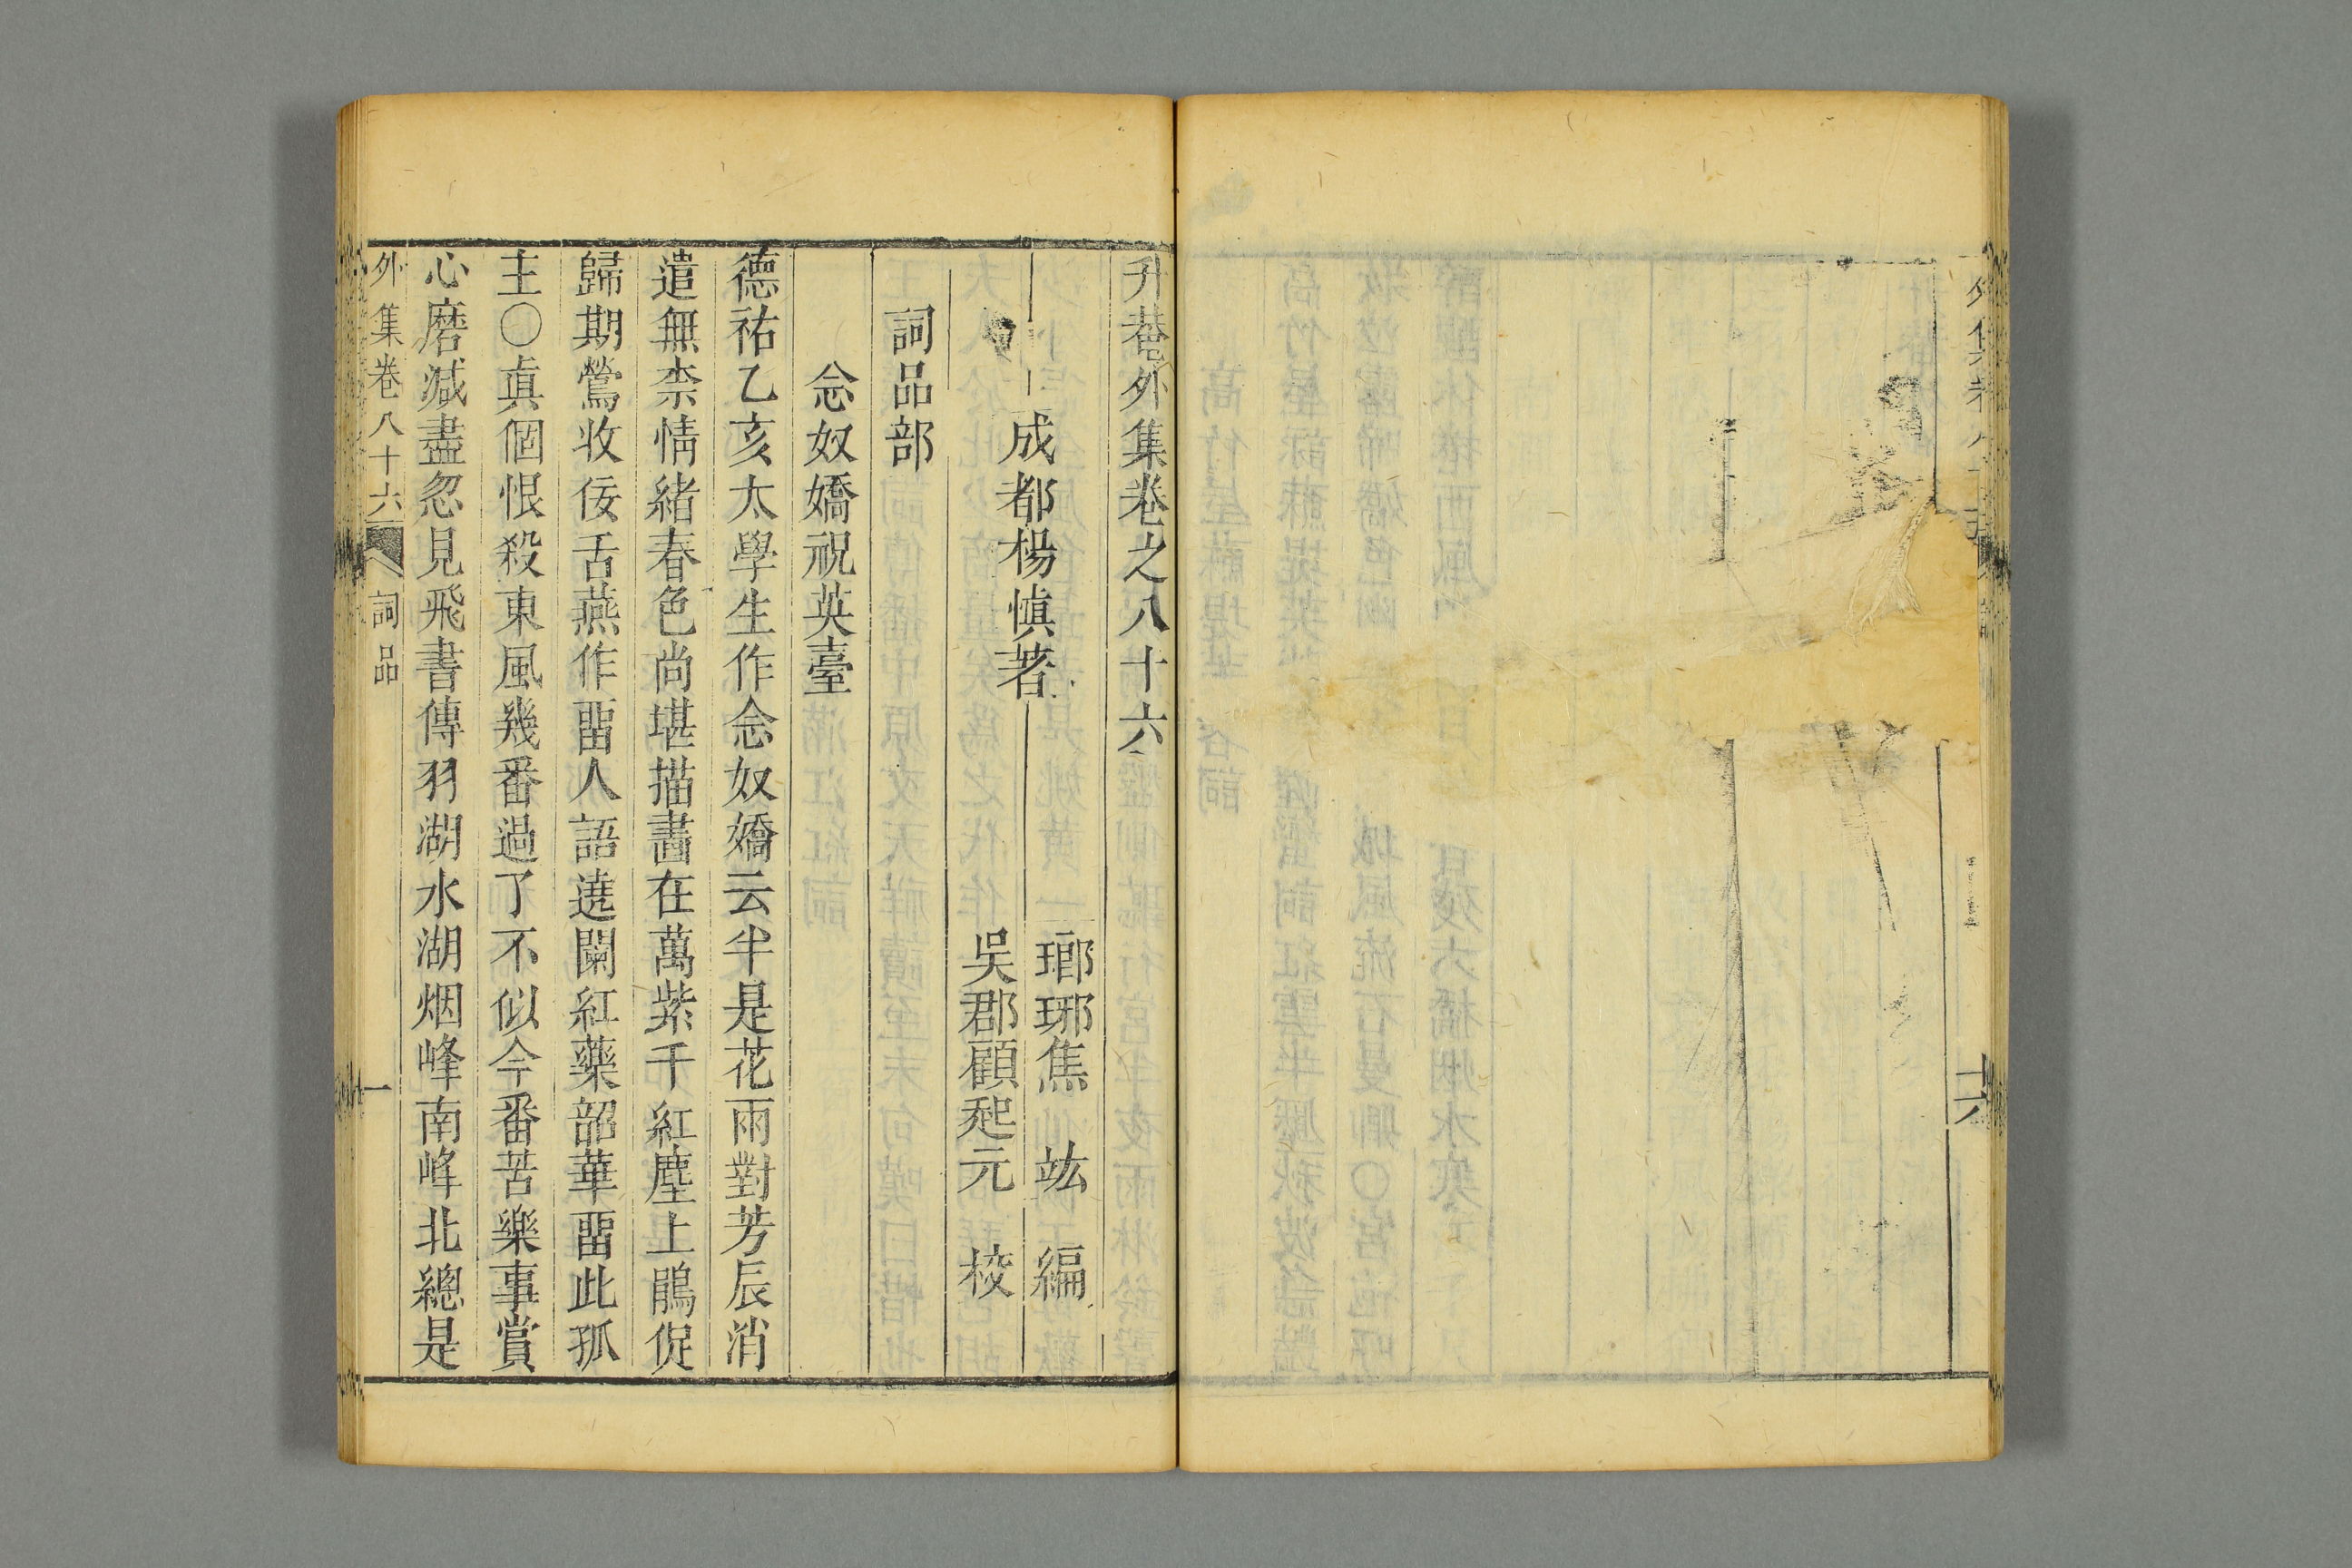 升菴外集卷之八十六
成都楊慎著
瑯琊焦竑編
吳郡顧起元校
詞品部
念奴嬌祝英臺
德祐乙亥太學生作念奴嬌云半是花雨對芳辰消
遣無柰情緒春色尚堪描畵在萬紫千紅塵土鵑促
歸期鶯收佞舌燕作畱人語遶闌紅藥韶華畱此孤
主〇眞個恨殺東風幾番過了不似今番苦樂事賞
心磨滅盡忽見飛書傳羽湖水湖烟峰南峰北總是
外集卷八十六
詞品
一
外集卷八十
十六